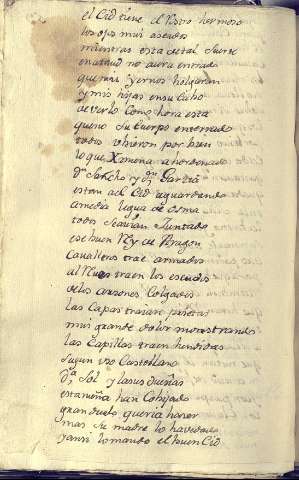 el Cid tiene el Rostro hermoso
los ojos mui aseados
mientras esta de tal suerte
en ataud no aura entrado
que mis yernos holgaran
y mis hijas en su cabo
de verlo como hora esta
que no su cuerpo enterrado
todos vbieron por bien
lo que Ximena a hordenado
Dn Sancho y Dn Garcia
estan al Cid aguardando
a media legua de osma
todos se avian juntado
ese buen Rey de Aragon
Caualleros trae armados
al Reues traen los escudos
de los arzones colgados
las Capas traian prietas
mui grande dolor mostrando
las Capillas traen hendidas
segun vso Castellano
Da Sol y las sus dueñas
estameña han cobijado
gran duelo queria hazer
mas su madre lo ha vedado
y ansi tomando el buen Cid